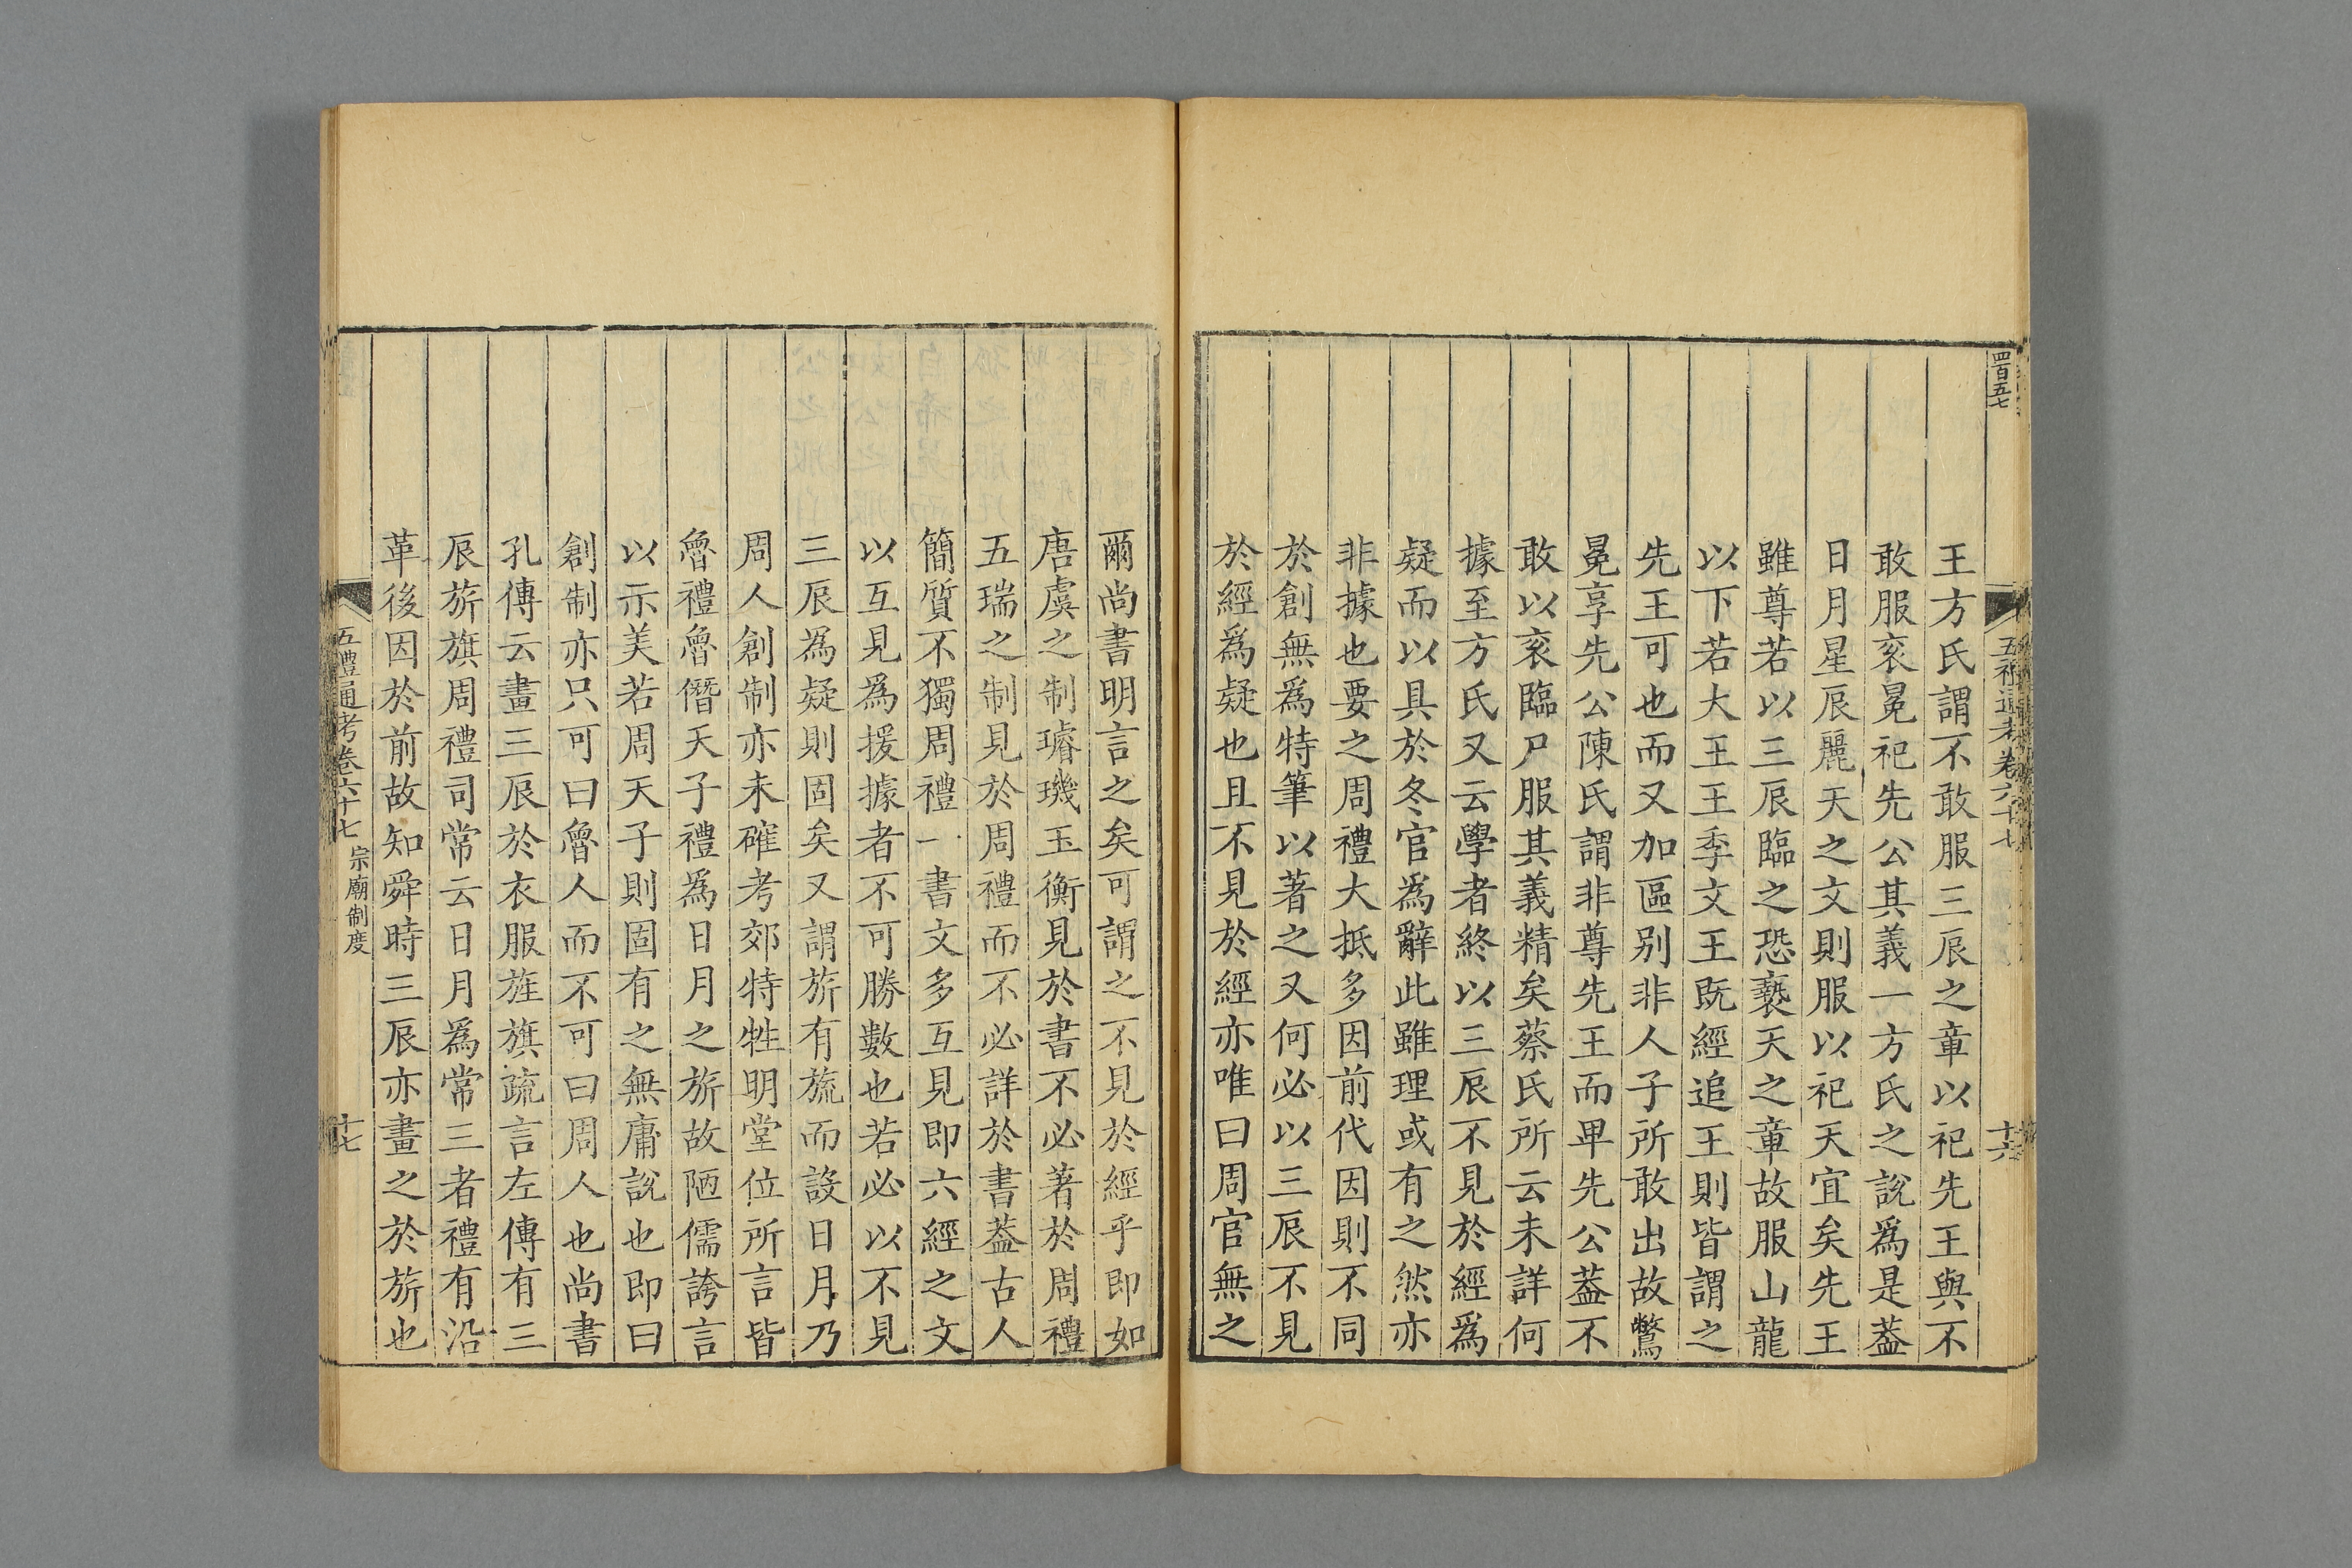 四百五七
五禮通考卷六十七
十六
王方氏謂不敢服三辰之章以祀先王與不
敢服衮冕祀先公其義一方氏之說爲是葢
日月星辰麗天之文則服以祀天宜矣先王
雖尊若以三辰臨之恐褻天之章故服山龍
以下若大王王季文王既經追王則皆謂之
先王可也而又加區别非人子所敢出故鷩
冕享先公陳氏謂非尊先王而卑先公葢不
敢以衮臨尸服其義精矣蔡氏所云未詳何
據至方氏又云學者終以三辰不見於經爲
疑而以具於冬官爲辭此雖理或有之然亦
非據也要之周禮大抵多因前代因則不同
於創無爲特筆以著之又何必以三辰不見
於經爲疑也且不見於經亦唯曰周官無之
爾尚書明言之矣可謂之不見於經乎即如
唐虞之制璿璣玉衡見於書不必著於周禮
五瑞之制見於周禮而不必詳於書葢古人
簡質不獨周禮一書文多互見即六經之文
以互見爲援據者不可勝數也若必以不見
三辰爲疑則固矣又謂旂有旒而設日月乃
周人創制亦未確考郊特牲明堂位所言皆
魯禮魯僭天子禮爲日月之旂故陋儒誇言
以示美若周天子則固有之無庸説也即曰
創制亦只可曰魯人而不可曰周人也尚書
孔傳云畫三辰於衣服旌旗疏言左傳有三
辰旂旗周禮司常云日月爲常三者禮有沿
革後因於前故知舜時三辰亦畫之於旂也
五禮通考卷六十七 宗廟制度
十七